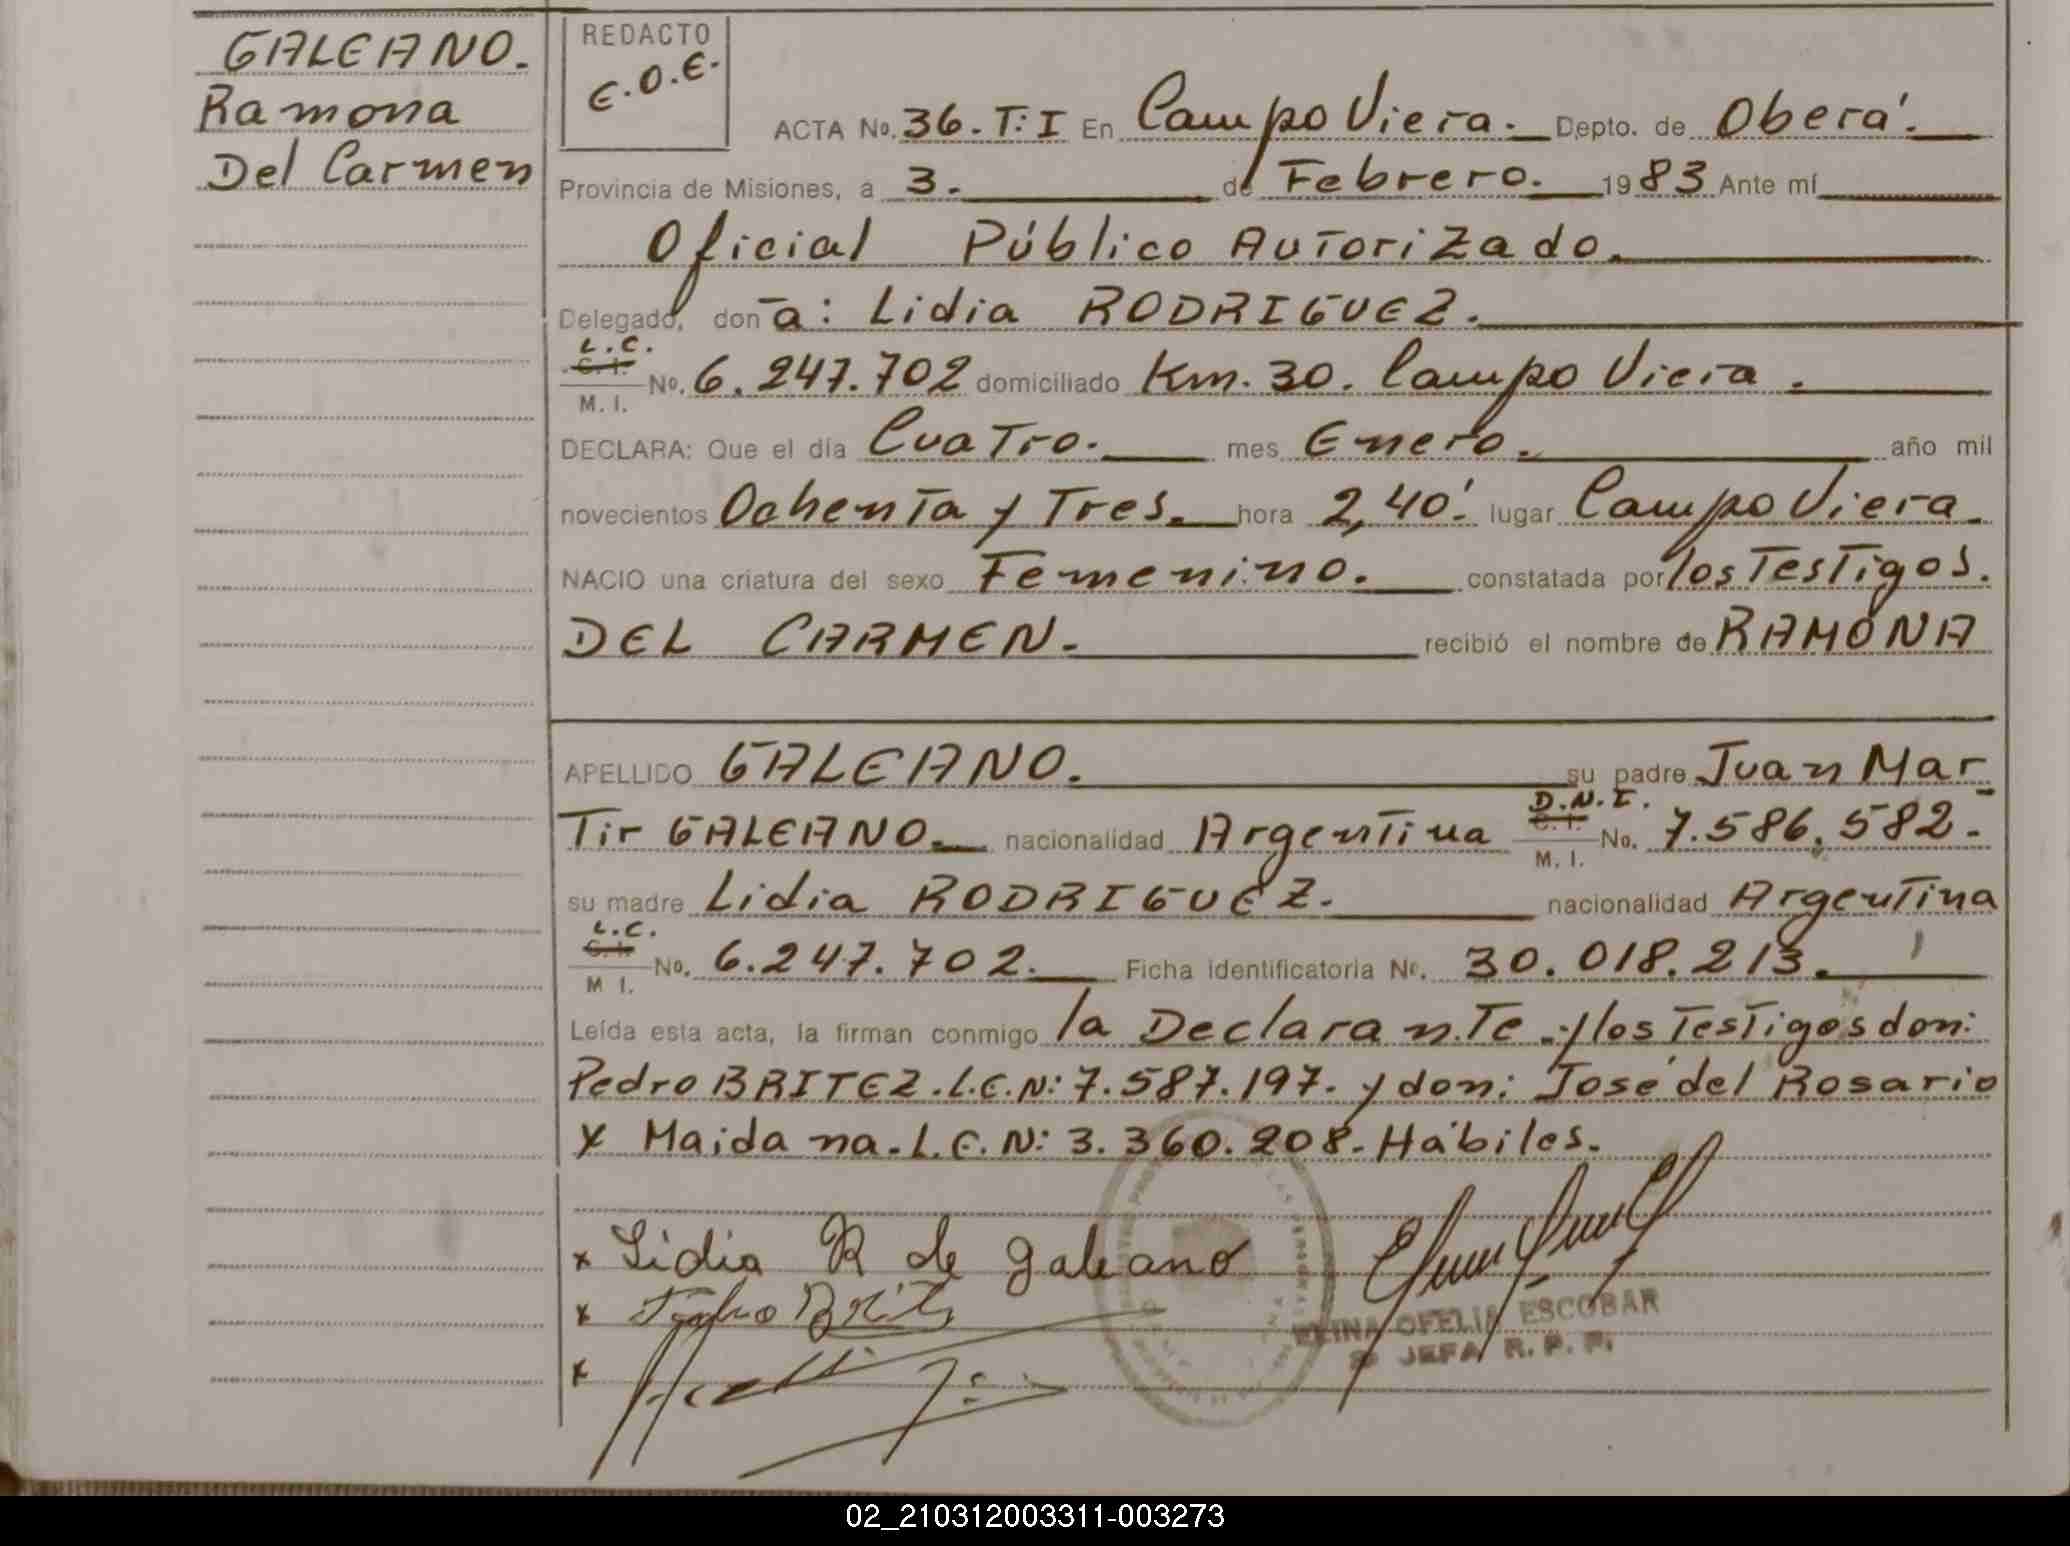 GALEANO.
Ramona
Del Carmen
REDACTO
E.O.E.
ACTA No. 36. T: I En Campo Viera. Depto. de Oberá.
Provincia de Misiones, a 3. de Febrero. 1983 Ante mí
Oficial Público Autorizado.
Delegado, don a: Lidia RODRIGUEZ.
L.C.
C.I.
M. I.
No. 6.247.702 domiciliado Km. 30. Campo Viera.
DECLARA: Que el día Cuatro. mes Enero. año mil
novecientos Ochenta y Tres. hora 2,40' lugar Campo Viera.
NACIO una criatura del sexo Femenino. constatada por los Testigos.
DEL CARMEN. recibió el nombre de RAMONA
APELLIDO GALEANO. su padre Juan Mar
D.N.I.
C.I.
M. I.
Tir GALEANO. nacionalidad Argentina No. 7.586.582.
su madre Lidia RODRIGUEZ. nacionalidad Argentina
L.C.
C.I.
M I.
No. 6.247.702. Ficha identificatoria No. 30.018.213.
Leída esta acta, la firman conmigo la Declarante. y los Testigos don:
Pedro BRITEZ. L.E.N: 7.587.197. y don: José del Rosario
x Maidana. L.E.N: 3.360.208. Hábiles.
x Lidia R de galeano
x
x
OFELIA ESCOBAR
JEFA R. P. P.
02_210312003311-003273